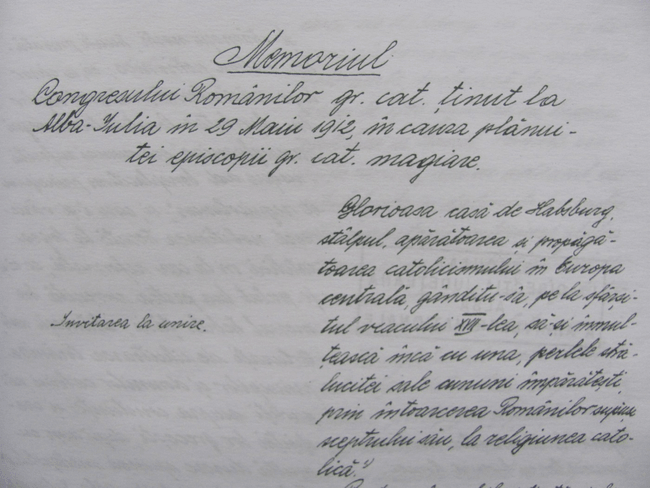 Memoriul
Congresului Românilor gr. cat. ținut la
Alba-Iulia în 29 Maiu 1912, în cauza plănui-
tei episcopii gr. cat. magiare.
Glorioasa casă de Habsburg,
stâlpul, apărătoarea și propagă-
toarea catolicismului în Europa
centrală, gânditu-s'a, pe la sfârși-
tul veacului XVII-lea, să-și înmul-
țească încă cu una, perlele stră-
lucitei sale cununi împărătești
prin întoarcerea Românilor supuși
sceptrului său, la religiunea cato-
lică.¹)
Invitarea la unire.